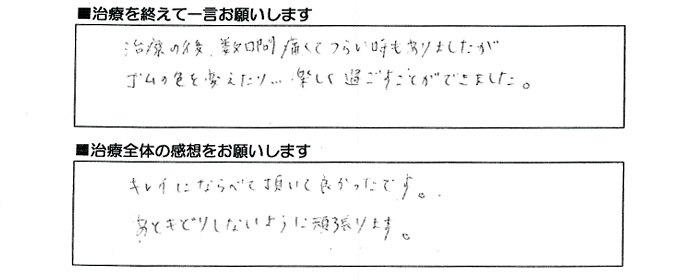 ■治療を終えて一言お願いします
治療の後、数日間痛くてつらい時もありましたが
ゴムの色を変えたり…楽しく過ごすことができました。
■治療全体の感想をお願いします
キレイにならべて頂いて良かったです。
あともどりしないように頑張ります。